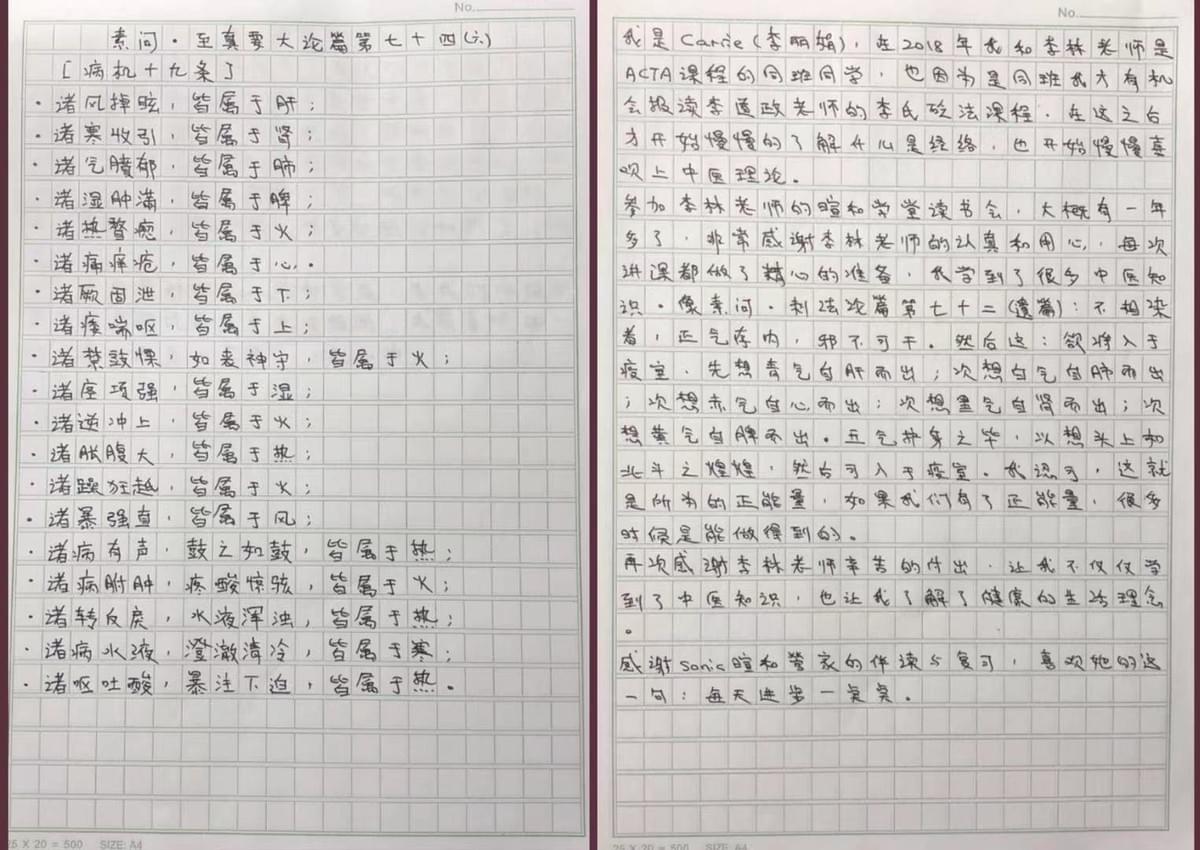 No.
素问·至真要大论篇第七十四(六)
[病机十九条]
·诸风掉眩，皆属于肝；
·诸寒收引，皆属于肾；
·诸气膹郁，皆属于肺；
·诸湿肿满，皆属于脾；
·诸热瞀瘛，皆属于火；
·诸痛痒疮，皆属于心。
·诸厥固泄，皆属于下；
·诸痿喘呕，皆属于上；
·诸禁鼓慄，如丧神守，皆属于火；
·诸痉项强，皆属于湿；
·诸逆冲上，皆属于火；
·诸胀腹大，皆属于热；
·诸躁狂越，皆属于火；
·诸暴强直，皆属于风；
·诸病有声，鼓之如鼓，皆属于热；
·诸病胕肿，疼酸惊骇，皆属于火；
·诸转反戾，水液浑浊，皆属于热；
·诸病水液，澄澈清冷，皆属于寒；
·诸呕吐酸，暴注下迫，皆属于热。
25 X 20 = 500 SIZE: A4
No.
我是Carrie(李丽娟)，在2018年我和李林老师是
ACTA课程的同班同学，也因为是同班我才有机
会报读李道政老师的李氏砭法课程。在这之后
才开始慢慢的了解什么是经络，也开始慢慢喜
欢上中医理论。
参加李林老师的暄和学堂读书会，大概有一年
多了，非常感谢李林老师的认真和用心，每次
讲课都做了精心的准备，我学到了很多中医知
识。像素问·刺法次篇第七十二(遗篇)：不相染
者，正气存内，邪不可干。然后这：欲将入于
疫室，先想青气自肝而出；次想白气自肺而出
；次想赤气自心而出；次想黑气自肾而出；次
想黄气自脾而出。五气护身之毕，以想头上如
北斗之煌煌，然后可入于疫室。我认为，这就
是所为的正能量，如果我们有了正能量，很多
时候是能做得到的。
再次感谢李林老师辛苦的付出，让我不仅仅学
到了中医知识，也让我了解了健康的生活理念
。
感谢Sonic暄和管家的伴读与复可，喜欢她的这
一句：每天进步一点点。
25 X 20 = 500 SIZE: A4